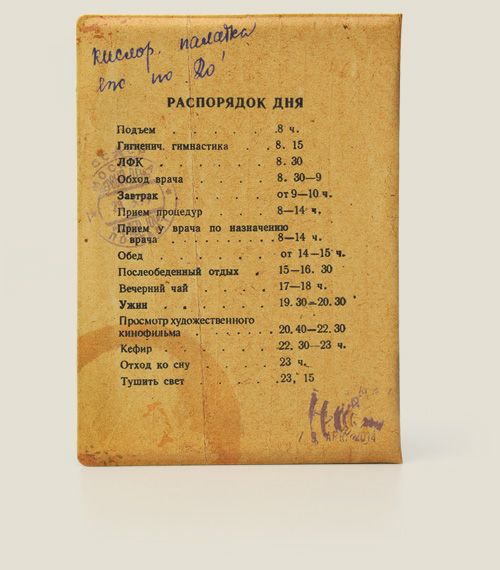 кислор. палатка
по 20'
РАСПОРЯДОК ДНЯ
Подъем . . . . . . 8 ч.
Гигиенич. гимнастика . . 8. 15
ЛФК . . . . . . . 8. 30
Обход врача . . . . . 8. 30—9
Завтрак . . . . . от 9—10 ч.
Прием процедур . . . . 8—14 ч.
Прием у врача по назначению
врача . . . . . . . 8—14 ч.
Обед . . . . . . . от 14—15 ч.
Послеобеденный отдых . 15—16. 30
Вечерний чай . . . . 17—18 ч.
Ужин . . . . . . 19. 30—20. 30
Просмотр художественного
кинофильма . . . . . . 20. 40—22. 30
Кефир . . . . . . . 22. 30—23 ч.
Отход ко сну . . . . . 23 ч.
Тушить свет . . . . . 23, 15